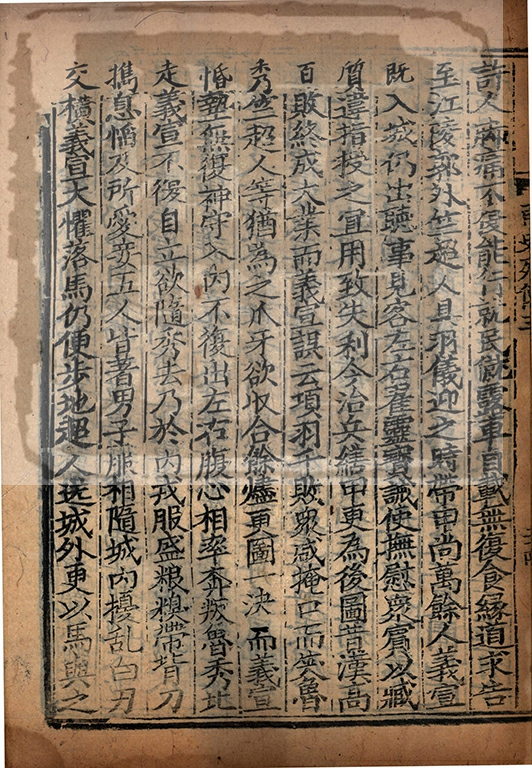 許人脚痛不復能行就民僦露車自載無復食緣道求告
至江陵郭外竺超人具羽儀迎之時帶甲尚萬餘人義宣
既入城仍出聽事見客左右翟靈寶誡使撫慰衆賓以臧
質違指授之宜用致失利今治兵繕甲更為後圖昔漢高
百敗終成大業而義宣誤云項羽千敗衆咸掩口而笑魯
秀竺超人等猶為之爪牙欲収合餘燼更圖一決而義宣
惛墊無復神守入内不復出左右腹心相率奔叛魯秀北
走義宣不復自立欲隨秀去乃於内戎服盛粮糗帶背刀
携息慆及所愛妾五人皆著男子服相隨城内擾乱白刃
交橫義宣大懼落馬仍便步地超人送城外更以馬與之